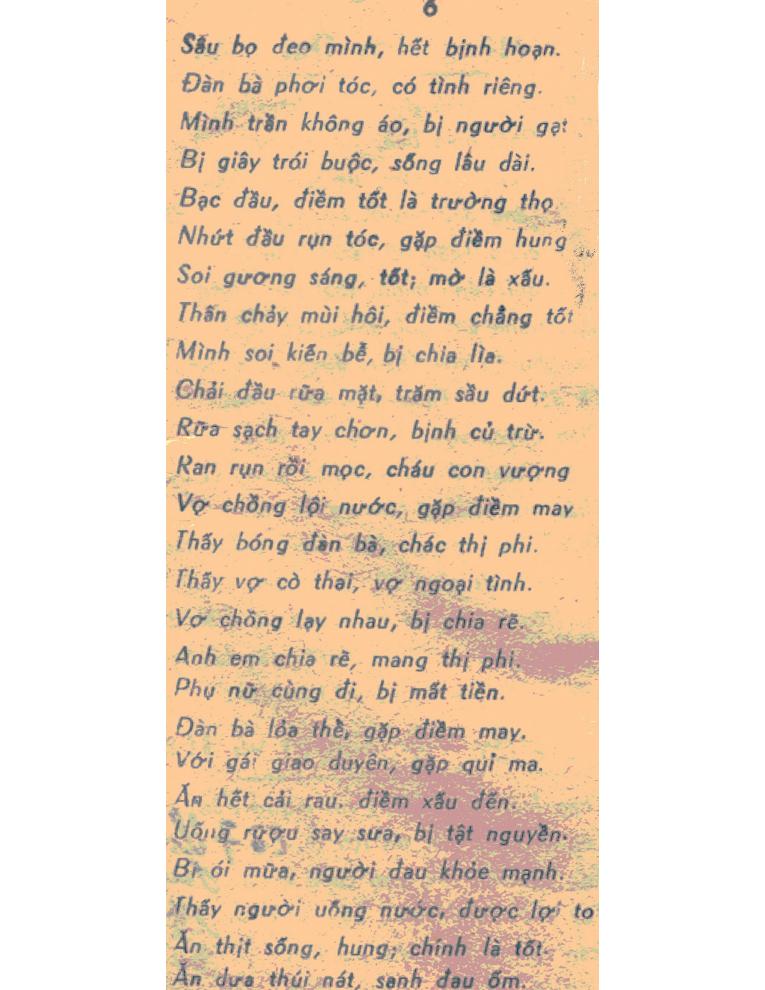 6
Sầu bọ đeo mình, hết bịnh hoạn.
Đàn bà phơi tóc, có tình riêng.
Mình trần không áo, bị người gạt
Bị giây trói buộc, sống lâu dài.
Bạc đầu, điềm tốt là trường thọ
Nhứt đầu rụn tóc, gặp điềm hung
Soi gương sáng, tốt; mờ là xấu.
Thân chảy mùi hôi, điềm chẳng tốt
Mình soi kiến bể, bị chia lìa.
Chải đầu rữa mặt, trăm sầu dứt.
Rữa sạch tay chơn, bịnh củ trừ.
Ran rụn rồi mọc, cháu con vượng
Vợ chồng lội nước, gặp điềm may
Thấy bóng đàn bà, chác thị phi.
Thấy vợ cò thai, vợ ngoại tình.
Vợ chồng lạy nhau, bị chia rẽ.
Anh em chia rẽ, mang thị phi.
Phụ nữ cùng đi, bị mất tiền.
Đàn bà lỏa thể, gặp điềm may.
Với gái giao duyên, gặp quỉ ma.
Ăn hết cải rau. điềm xấu đến.
Uống rượu say sưa, bị tật nguyền.
Bị ói mữa, người đau khỏe mạnh.
Thấy người uống nước, được lợi to
Ăn thịt sống, hung; chính là tốt
Ăn dưa thúi nát, sanh đau ốm.